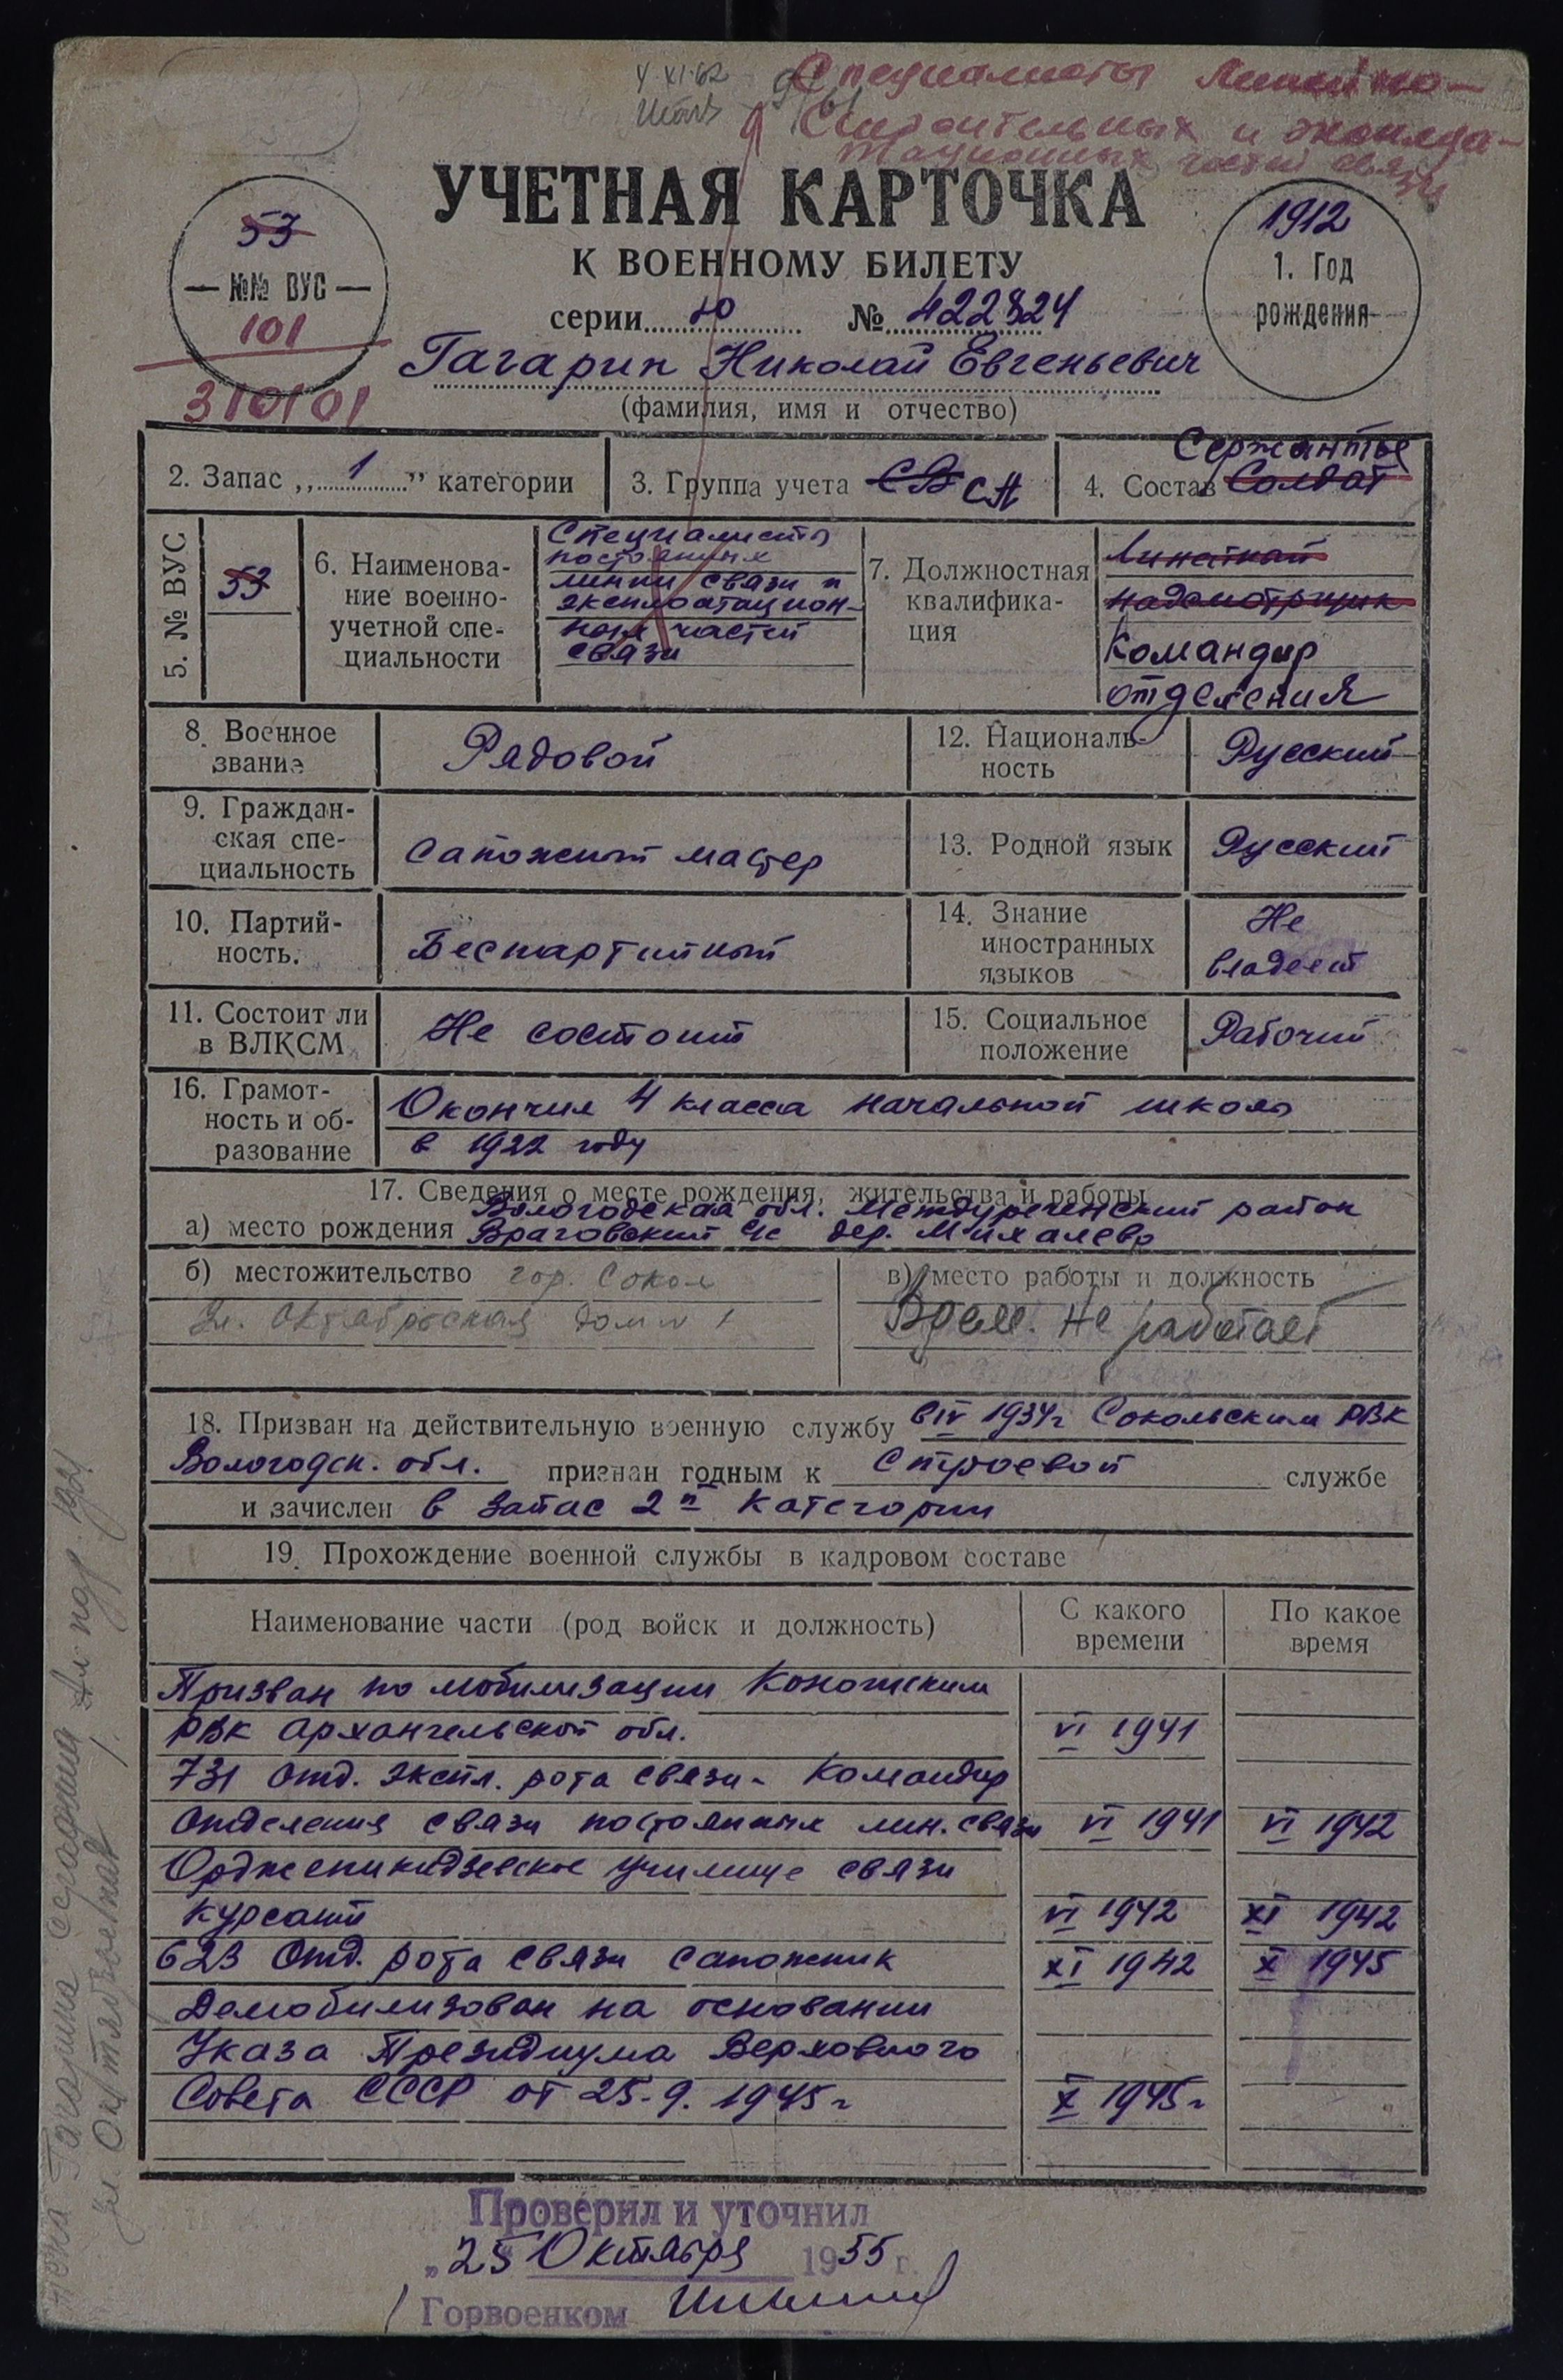 4.XI.62
Специалисты линейно-
строительных и эксплуа-
тационных частей связи
УЧЕТНАЯ КАРТОЧКА
К ВОЕННОМУ БИЛЕТУ
серии Ю № 422824
Гагарин Николай Евгеньевич
(фамилия, имя и отчество)
53
№№ ВУС
101
310101
1912
1. Год
рождения
2. Запас „1" категории
3. Группа учета СВ СА
Сержанты
4. Состав Солдат
5. № ВУС
53
6. Наименова-
ние военно-
учетной спе-
циальности
Специалисты
постоянных
линий связи и
эксплоатацион-
ных частей
связи
7. Должностная
квалифика-
ция
Линейный
надсмотрщик
Командир
отделения
8. Военное
звание
Рядовой
12. Националь-
ность
Русский
9. Граждан-
ская спе-
циальность
Сапожный мастер
13. Родной язык
Русский
10. Партий-
ность.
Беспартийный
14. Знание
иностранных
языков
Не
владеет
11. Состоит ли
в ВЛКСМ
Не состоит
15. Социальное
положение
Рабочий
16. Грамот-
ность и об-
разование
Окончил 4 класса начальной школы
в 1922 году
17. Сведения о месте рождения, жительства и работы
Вологодская обл. Междуреченский район
а) место рождения Враговский с/с дер. Михалево
б) местожительство гор. Сокол
Ул. Октябрьская дом № 1
в) место работы и должность
Врем. не работает
18. Призван на действительную военную службу в IV 1934г Сокольским РВК
Вологодск. обл. признан годным к строевой службе
и зачислен в запас 2й категории
19. Прохождение военной службы в кадровом составе
Наименование части (род войск и должность)
С какого
времени
По какое
время
Призван по мобилизации Коношским
РВК Архангельской обл. VI 1941
731 Отд. экспл. рота связи - Командир
Отделения связи постоянных лин. связи VI 1941 VI 1942
Орджоникидзевское училище связи
Курсант VI 1942 XI 1942
623 Отд. рота связи сапожник XI 1942 X 1945
Демобилизован на основании
Указа Президиума Верховного
Совета СССР от 25.9.1945г X 1945г
Проверил и уточнил
„25" Октября 1955 г.
Горвоенком
жена Гагарина
ул. Октябрьская 1